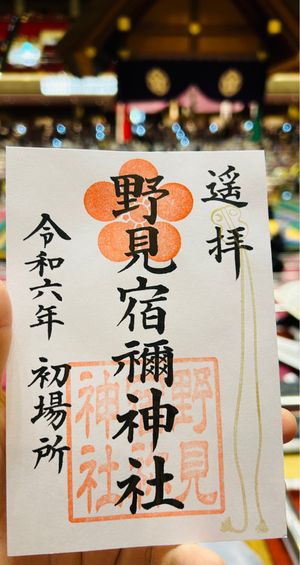 遥拝
野見宿禰神社
令和六年 初場所
野見
宿祢
神社